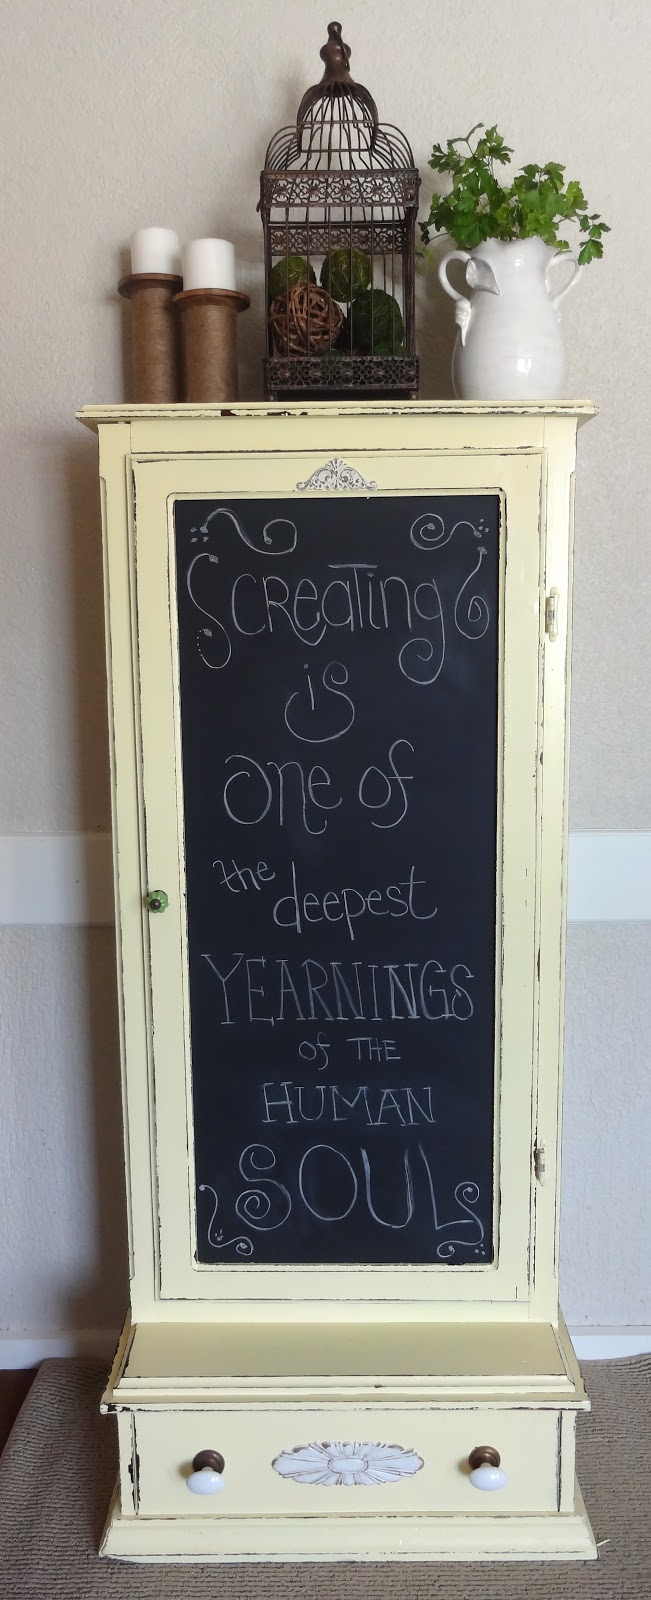 creating
is
one of
the deepest
YEARNINGS
of THE
HUMAN
SOUL